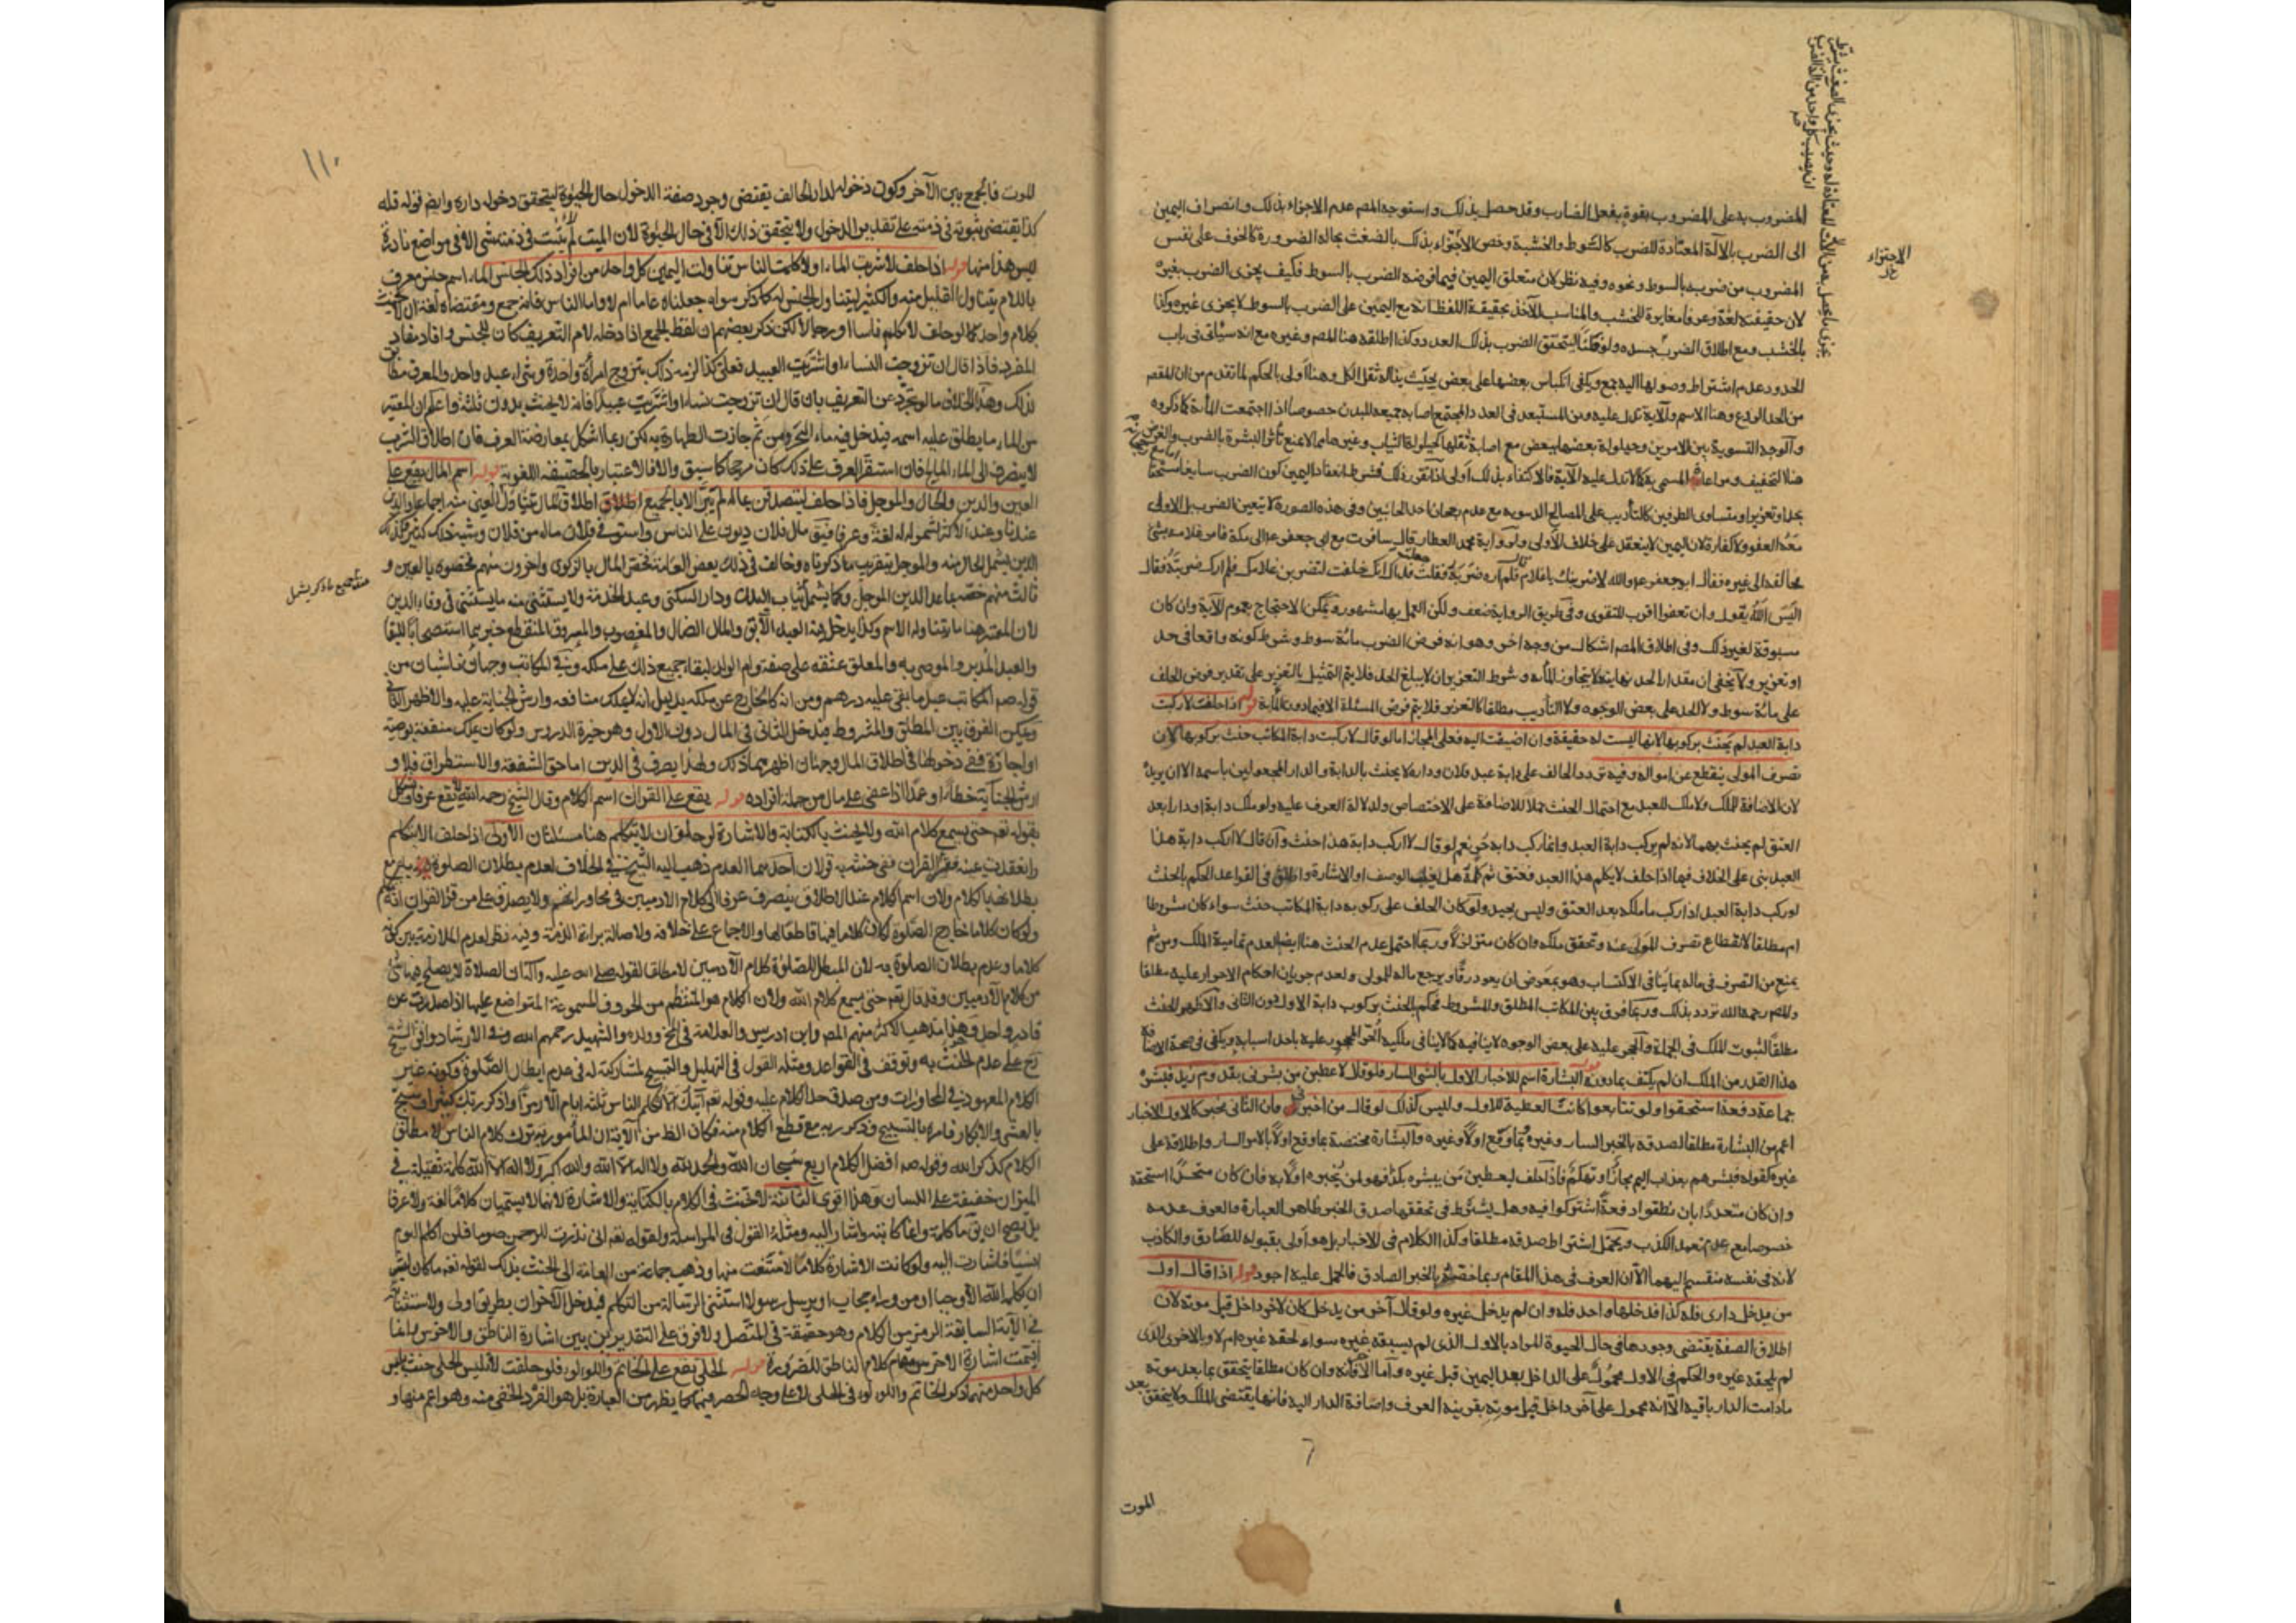 المضروب به على المضروب بقوة بفعل الضارب وقد حصل بذلك واستوجه المص عدم الاجزاء بذلك وانصراف اليمين
الى الضرب بالآلة المعتادة للضرب كالسوط والخشبة وخص الاجتزاء بذلك بالضغث بحالة الضرورة كالخوف على نفس
المضروب من ضربه بالسوط ونحوه وفيه نظر لان متعلق اليمين فيما فرضه الضرب بالسوط فكيف يجزى الضرب بغيره
لان حقيقته لغة وعرفا مغايرة للخشب والمناسب للاخذ بحقيقة اللفظ انه مع اليمين على الضرب بالسوط لا يجزى غيره وكذا
بالخشب ومع اطلاق الضرب جسده ولو ظنا ليتحقق الضرب بذلك العدد وكذا اطلقه هنا المص وغيره مع انه سيأتى فى باب
الحدود عدم اشتراط وصولها اليه جمع ويكفى انكباس بعضها على بعض بحيث يناله ثقل الكل وهنا اولى بالحكم لما تقدم من ان المقص
من الحد الردع وهنا الاسم والآية تدل عليه ومن المستبعد فى العدد المجتمع اصابة جميعه للبدن خصوصا اذا اجتمعت المأة كما ذكروه
والوجه التسوية بين الامرين وحيلولة بعضها ببعض مع اصابة ثقلها كحيلولة الثياب وغيرها مما لا يمنع تأثر البشرة بالضرب والغرض
هنا التخفيف ومراعاة المسمى به كما تدل عليه الآية فالاكتفاء بذلك اولى اذا تقرر ذلك فشرط انعقاد اليمين كون الضرب سايغا مستحقا
بحد او تعزير او متساوى الطرفين كالتأديب على المصالح الدنيوية مع عدم رجحان احد الجانبين وفى هذه الصورة لا يتعين الضرب بل الاولى
معه العفو ولا كفارة لان اليمين لا ينعقد على خلاف الاولى ولرواية محمد العطار قال سافرت مع ابى جعفر ع الى مكة فامر غلامه بشئ
فخالفه الى غيره فقال ابو جعفر ع والله لاضربنك يا غلام قال فلم اره ضربه فقلت جعلت فداك انك حلفت لتضربن غلامك فلم ارك ضربته فقال
اليس الله يقول وان تعفوا اقرب للتقوى وفى طريق الرواية ضعف ولكن العمل بها مشهور ويمكن الاحتجاج بعموم الآية وان كان
مسبوقة لغير ذلك وفى اطلاق المص اشكال من وجه آخر وهو انه فرض الضرب مائة سوط وشرط كونه واقعا فى حد
او تعزير ولا يخفى ان مقدار الحد نهايته لا يتجاوز المأة وشرط التعزير ان لا يبلغ الحد فلا يتم التمثيل بالتعزير على تقدير فرض الحلف
على مائة سوط ولا الحد على بعض الوجوه ولا التأديب مطلقا كالتعزير فلا يتم فرض المسئلة الا فيما دون المأة قوله اذا حلف لا ركبت
دابة العبد لم يحنث بركوبها لانها ليست له حقيقة وان اضيفت اليه فعلى المجاز اما لو قال لا ركبت دابة المكاتب حنث بركوبها لان
تصرف المولى ينقطع عن امواله وفيه تردد الحالف على دابة عبد فلان وداره لا يحنث بالدابة والدار المجعولين باسمه الا ان يريد
لان الاضافة للملك ولا ملك للعبد مع احتمال الحنث حملا للاضافة على الاختصاص ولدلالة العرف عليه ولو ملك دابة او دارا بعد
العتق لم يحنث بهما لانه لم يركب دابة العبد وانما ركب دابة حر نعم لو قال لا اركب دابة هذا حنث وان قال لا اركب دابة هذا
العبد بنى على الخلاف فيما اذا حلف لا يكلم هذا العبد فعتق ثم كلمه هل يغلب الوصف او الاشارة واطلق فى القواعد الحكم بالحنث
لو ركب دابة العبد اذا ركب ما ملكه بعد العتق وليس بجيد ولو كان الحلف على ركوبه دابة المكاتب حنث سواء كان مشروطا
ام مطلقا لانقطاع تصرف المولى عنه وتحقق ملكه وان كان متزلزلا وربما احتمل عدم الحنث هنا ايضا لعدم تمامية الملك ومن ثم
يمنع من التصرف فى ماله بما ينافى الاكتساب وهو بمعرض ان يعود رقا ويرجع ماله للمولى ولعدم جريان احكام الاحرار عليه مطلقا
والمص رحمه الله تردد بذلك وربما فرق بين المكاتب المطلق والمشروط فحكم بالحنث بركوب دابة الاول دون الثانى والاظهر الحنث
مطلقا لثبوت الملك فى الجملة والحجر عليه على بعض الوجوه لا ينافيه كما لا ينافى ملكية الحر المحجور عليه باحد اسبابه ويكفى فى صحة الاضافة
هذا القدر من الملك ان لم يكتف بما دونه قوله البشارة اسم للاخبار الاول بالشئ السار فلو قال لاعطين من بشرنى بقدوم زيد فبشره
جماعة دفعة استحقوا ولو تتابعوا كانت العطية للاول وليس كذلك لو قال من اخبرنى فان الثانى مخبر كالاول الاخبار
اعم من البشارة مطلقا لصدقه بالخبر السار وغيره وبما وقع اولا وغيره والبشارة مختصة بما وقع اولا بالامر السار واطلاقه على
غيره كقوله فبشرهم بعذاب اليم مجازا وتهكم فاذا حلف ليعطين من يبشره بكذا فهو لمن يخبره اولا به فان كان متحدا استحقه
وان كان متعددا بان نطقوا دفعة اشتركوا فيه وهل يشترط فى تحققها صدق الخبر ظاهر العبارة والعرف عدمه
خصوصا مع عدم تعمد الكذب ويحتمل اشتراط صدقه مطلقا وكذا الكلام فى الاخبار بل هو اولى بقبوله للصادق والكاذب
لانه فى نفسه منقسم اليهما الا ان العرف فى هذا المقام ربما خصه بالخبر الصادق فالحمل عليه اجود قوله اذا قال اول
من يدخل دارى فله كذا فدخلها واحد فله وان لم يدخل غيره ولو قال آخر من يدخل كان لآخر داخل قبل موته لان
اطلاق الصفة يقتضى وجودها فى حال الحيوة المراد بالاول الذى لم يسبقه غيره سواء لحقه غيره ام لا وبالآخر الذى
لم يلحقه غيره والحكم فى الاول محمول على الداخل بعد اليمين قبل غيره واما الآخر فانه وان كان مطلقا يتحقق بما بعد موته
مادامت الدار باقية الا انه محمول على آخر داخل قبل موته بقرينة العرف واضافة الدار اليه فانها يقتضى الملك ولا يتحقق بعد
الموت
الاجتزاء
١١٠
للموت فالجمع بين الآخر وكون دخوله لدار الحالف يقتضى وجود صفة الدخول حال الحيوة ليتحقق دخوله داره وايض قوله فله
كذا يقتضى ثبوته فى ذمته على تقدير الدخول ولا يتحقق ذلك الا فى حال الحيوة لان الميت لا يثبت فى ذمته شئ الا فى مواضع نادرة
ليس هذا منها قوله اذا حلف لا شربت الماء او لا كلمت الناس تناولت اليمين كل واحد من افراد ذلك الجنس الماء اسم جنس معرف
باللام يتناول القليل منه والكثير ليتناول الجنس له كما ذكر سواء جعلناه عاما ام لا واما الناس فانه جمع ومقتضاه لغة ان لا يحنث
بكلام واحد كما لو حلف لا كلم ناسا او رجالا لكن ذكر بعضهم ان لفظ الجمع اذا دخله لام التعريف كان للجنس وافاد مفاد
المفرد فاذا قال ان تزوجت النساء او اشتريت العبيد فعلى كذا لزمه ذلك بتزوج امرأة واحدة وبشراء عبد واحد والعرف مطابق
لذلك وهذا بخلاف ما لو تجرد عن التعريف بان قال ان تزوجت نساء او اشتريت عبيدا فانه لا يحنث بدون ثلثة واعلم ان المعتبر
من الماء ما يطلق عليه اسمه فيدخل فيه ماء البحر ومن ثم جازت الطهارة به لكن ربما اشكل بمعارضة العرف فان اطلاق الشرب
لا ينصرف الى الماء المالح فان استقر العرف على ذلك كان مرجحا كما سبق والا فالاعتبار بالحقيقة اللغوية قوله اسم المال يقع على
العين والدين والحال والموجل فاذا حلف ليتصدقن بماله لم يبر الا بالجميع اطلاق المال يتناول العينى منه اجماعا والدين
عندنا وعند الاكثر لشموله له لغة وعرفا فيق مال فلان ديون على الناس واستوفى فلان ماله من فلان وشبه ذلك كثير فكذلك
الدين يشمل الحال منه والموجل بتقريب ما ذكرناه وخالف فى ذلك بعض العامة فخص المال بالزكوى وآخرون منهم فخصوه بالعين و
ثالث منهم خصه بما عدا الدين الموجل وكما يشمل ثياب البدن ودار السكنى وعبد الخدمة ولا يستثنى منه ما يستثنى فى وفاء الدين
لان المعتبر هنا ما يتناوله الاسم وكذا يدخل فيه العبد الآبق والمال الضال والمغصوب والمسروق المنقطع خبرهما استصحابا للبقاء
والعبد المدبر والموصى به والمعلق عتقه على صفة وام الولد لبقاء جميع ذلك على ملكه وفى المكاتب وجهان ناشيان من
قوله ص المكاتب عبد ما بقى عليه درهم ومن انه كالخارج عن ملكه بدليل انه لا يملك منافعه وارش الجناية عليه والاظهر الثانى
ويمكن الفرق بين المطلق والمشروط فيدخل الثانى فى المال دون الاول وهو خيرة الدروس ولو كان يملك منفعة بوصية
او اجارة ففى دخولها فى اطلاق المال وجهان اظهرهما ذلك ولهذا يصرف فى الدين اما حق الشفعة والاستطراق فلا و
ارش الجناية خطأ او عمدا اذا عفى على مال من جملة افراده قوله يقع على القران اسم الكلام وقال الشيخ رحمه الله لا يقع عرفا ويشكل
بقوله تعم حتى يسمع كلام الله ولا يحنث بالكتابة والاشارة لو حلف ان لا يتكلم هنا مسئلتان الاولى اذا حلف الا يتكلم
وانعقدت يمينه فقرأ القران ففى حنثه به قولان احدهما العدم ذهب اليه الشيخ فى الخلاف لعدم بطلان الصلوة به مع
بطلانها بالكلام ولان اسم الكلام عند الاطلاق ينصرف عرفا الى كلام الادميين فى محاوراتهم ولا يصدق على من قرأ القران انه تكلم
ولو كان كلاما خارج الصلوة لكان كلاما فيها قاطعا لها والاجماع على خلافه ولاصالة براءة الذمة وفيه نظر لعدم الملازمة بين كونه
كلاما وعدم بطلان الصلوة به لان المبطل للصلوة كلام الآدميين لا مطلقا لقوله صلى الله عليه وآله ان الصلاة لا يصلح فيها شئ
من كلام الآدميين وقد قال تعم حتى يسمع كلام الله ولان الكلام هو المنتظم من الحروف المسموعة المتواضع عليها اذا صدرت عن
قادر واحد وهذا مذهب الاكثر منهم المص وابن ادريس والعلامة فى المخ وولده والشهيد رحمهم الله وفى الارشاد وافق الشيخ
رح على عدم الحنث به وتوقف فى القواعد ومثله القول فى التهليل والتسبيح لمشاركته له فى عدم ابطال الصلوة وكونه غير
الكلام المعهود فى المحاورات ومن صدق حد الكلام عليه وقوله تعم آيتك الا تكلم الناس ثلثة ايام الا رمزا واذكر ربك كثيرا وسبح
بالعشى والابكار فامره بالتسبيح وذكر ربه مع قطع الكلام منه فكان الظ من الآية ان المأمور به ترك كلام الناس لا مطلق
الكلام كذكر الله وقوله ص افضل الكلام اربع سبحان الله والحمد لله ولا اله الا الله والله اكبر ولا اله الا الله كلمة ثقيلة فى
الميزان خفيفة على اللسان وهذا اقوى الثانية لا يحنث فى الكلام بالكتابة والاشارة لانهما لا يسميان كلاما لغة ولا عرفا
بل يصح ان يق ما كلمه وانما كاتبه واشار اليه ومثله القول فى المراسلة ولقوله تعم انى نذرت للرحمن صوما فلن اكلم اليوم
انسيا فاشارت اليه ولو كانت الاشارة كلاما لامتنعت منها وذهب جماعة من العامة الى الحنث بذلك لقوله تعم ما كان لبشر
ان يكلمه الله الا وحيا او من وراء حجاب او يرسل رسولا استثنى الرسالة من التكلم فيدخل الآخران بطريق اولى ولاستثنائه
فى الآية السابقة الرمز من الكلام وهو حقيقة فى المتصل ولا فرق على التقديرين بين اشارة الناطق والاخرس وانما
اقيمت اشارة الاخرس مقام كلام الناطق للضرورة قوله الحلى يقع على الخاتم واللؤلؤ فلو حلفت لا تلبس الحلى حنث بلبس
كل واحد منهما ذكر الخاتم واللؤلؤ فى الحلى لا على وجه الحصر فيهما كما يظهر من العبارة بل هو الفرد الخفى منه وهو اعم منها و